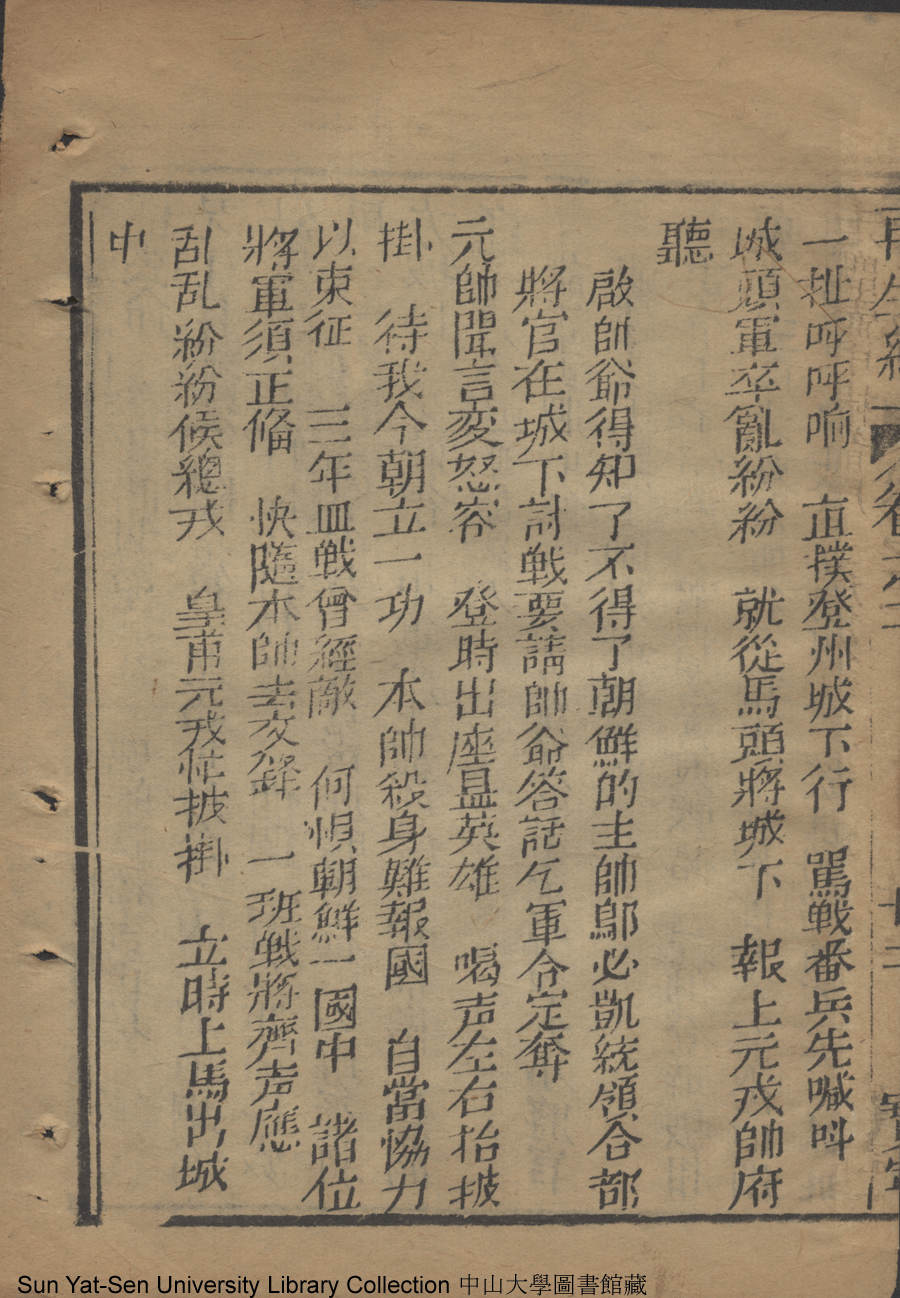 一扯呼呼响　直撲登州城下行　罵戦番兵先喊呌
城頭軍卒亂紛紛　就從馬頭將城下　報上元戎帥府
聽
啟帥爺得知了不得了朝鮮的主帥鄔必凱統領合部
將官在城下討戦要請帥爺答話乞軍令定奪
元帥聞言変怒容　登時出座显英雄　喝声左右抬披
掛　待我今朝立一功　本帥殺身難報國　自當恊力
以東征　三年血戦曾經敵　何惧朝鮮一國中　諸位
將軍須正偹　快隨本帥去交鋒　一班戦將齊声應
乱乱紛紛候總戎　皇甫元戎忙披掛　立時上馬出城
中
Sun Yat-Sen University Library Collection 中山大學圖書館藏